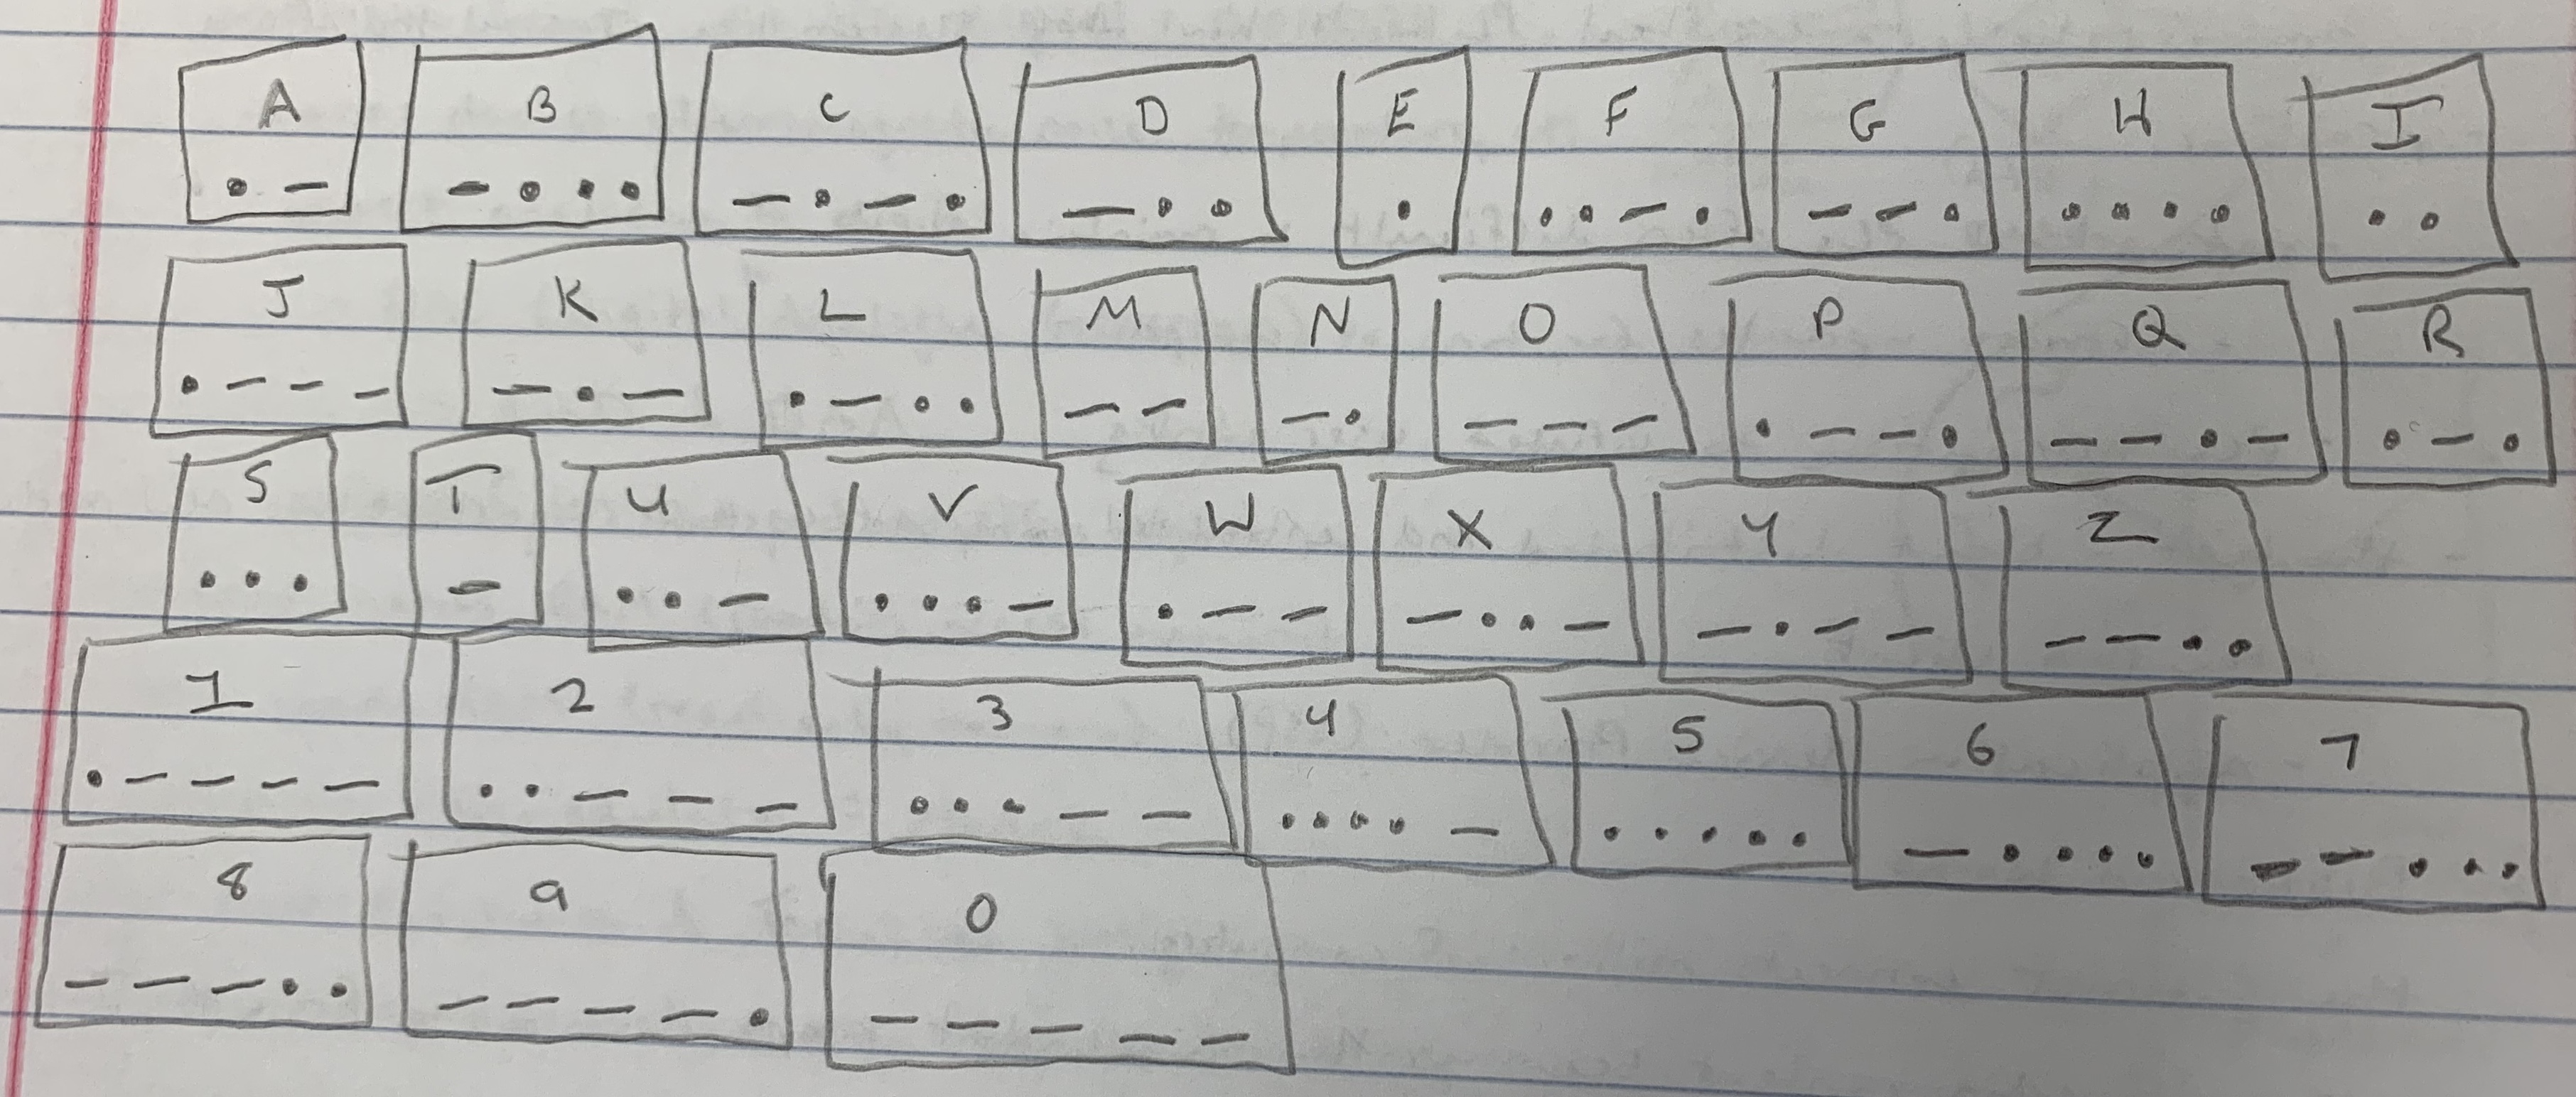 A B C D E F G H I
• — — • • • — • — • — • • • • • — • — — • • • • • • •
J K L M N O P Q R
• — — — — • — • — • • — — — • — — — • — — • — — • — • — •
S T U V W X Y Z
• • • — • • — • • • — • — — — • • — — • — — — — • •
1 2 3 4 5 6 7
• — — — — • • — — — • • • — — • • • • — • • • • • — • • • • — — • • •
8 9 0
— — — • • — — — — • — — — — —